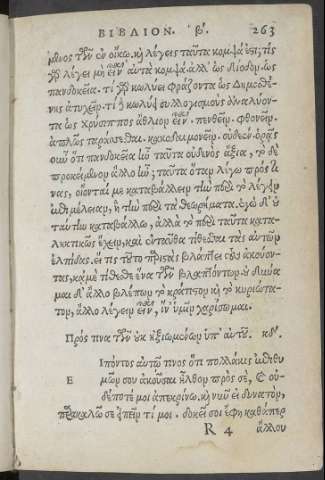 ΒΙΒΛΙΟΝ. β'. 263
μενος τῶν ἐν οἴκῳ. καὶ λέγεις ταῦτα κομψά ἐστι; τίς
γὰρ λέγει μὴ εἶναι αὐτὰ κομψά. ἀλλ' ὡς δίοδον. ὡς
πανδοκεῖα. τί γὰρ κωλύει φράζοντα ὡς Δημοσθέ-
νης ἀτυχεῖν. τί ἢ κωλύει συλλογισμοὺς ἀναλύον-
τα ὡς Χρύσιππος ἄθλιον εἶναι. πενθεῖν. φθονεῖν.
ἁπλῶς ταράσσεσθαι. κακοδαιμονεῖν. οὐδὲ ἕν. ὁρᾷς
οὖν ὅτι πανδοκεῖα ἦν ταῦτα οὐδενὸς ἄξια, τὸ δὲ
προκείμενον ἄλλο ἦν, ταῦτα ὅταν λέγω πρός τι-
νας, οἴονταί με καταβάλλειν τὴν περὶ τὸ λέγειν
ἐπιμέλειαν, ἢ τὴν περὶ τὰ θεωρήματα. ἐγὼ δ' οὐ
ταύτην καταβάλλω, ἀλλὰ τὸ περὶ ταῦτα κατα-
ληκτικῶς ἔχειν, καὶ ἐνταῦθα τίθεσθαι τὰς αὐτῶν
ἐλπίδας. εἴ τις τοῦτο παριστὰς βλάπτει τοὺς ἀκούον-
τας, κἀμὲ τίθεσθε ἕνα τῶν βλαπτόντων. οὐ δύνα-
μαι δ' ἄλλο βλέπων τὸ κράτιστον καὶ τὸ κυριώτα-
τον, ἄλλο λέγειν εἶναι, ἵν' ὑμῖν χαρίσωμαι.
Πρός τινα τῶν οὐκ ἠξιωμένων ὑπ' αὐτοῦ. κδ'.
Ε Ἰπόντος αὐτῷ τινος ὅτι πολλάκις ἐπιθυ-
μῶν σου ἀκοῦσαι ἦλθον πρός σὲ, καὶ οὐ-
δέποτέ μοι ἀπεκρίνω. καὶ νῦν εἰ δυνατὸν,
παρακαλῶ σε εἰπεῖν τί μοι. δοκεῖ σοι ἔφη καθάπερ
R 4 ἄλλου